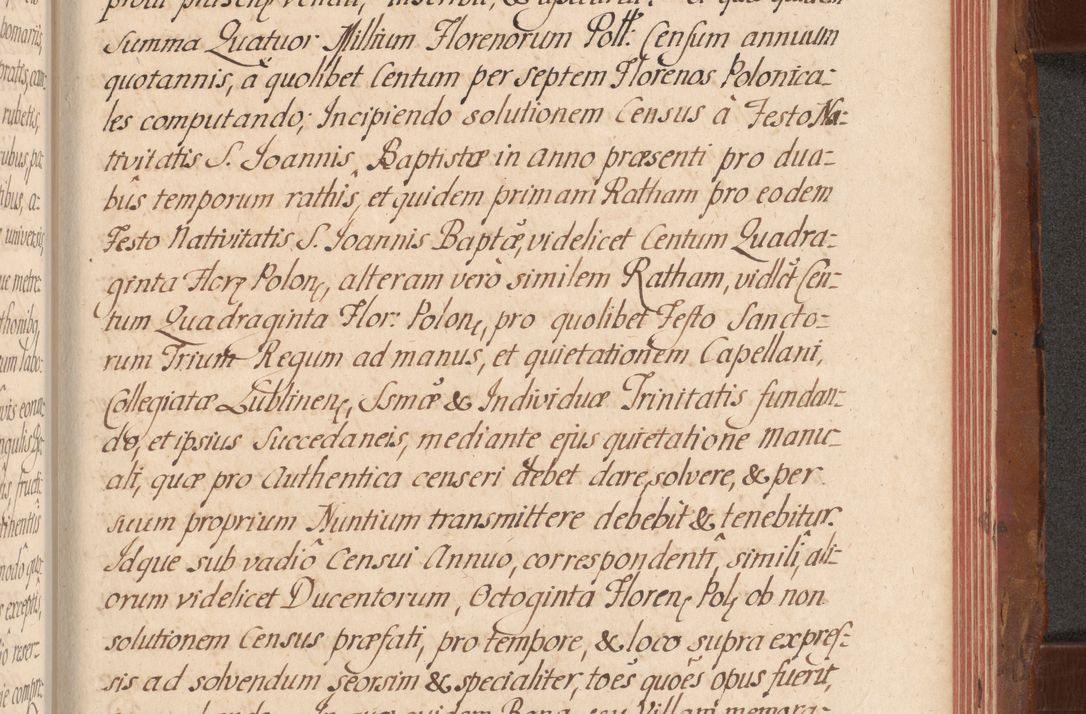 summa Quatuor Millium Florenorum Poltt: Censum annuum
quotannis, â quolibet Centum per septem Florenos Polonica=
les computando; Incipiendo solutionem Census à Festo Na=
tivitatis S. Joannis, Baptistæ in anno præsenti pro dua=
bûs temporum rathis, et quidem primam Ratham pro eodem
Festo Nativitatis S. Joannis Baptæ, videlicet Centum Quadra=
ginta Flory Polon, alteram verò similem Ratham, vidlct Cen=
tum Quadraginta Flor: Polon, pro quolibet Festo Sancto=
rum Trium Regum ad manus, et quietationem Capellani,
Collegiatæ Lublinen, Ssmæ & Individuæ Trinitatis fundan=
do, et ipsius Succedaneis, mediante ejus quietatione manu=
ali, quæ pro Authentica censeri debet dare, solvere, & per
suum proprium Nuntium transmittere debebit & tenebitur.
Idque sub vadiô Censui Annuo, correspondentî, similî, ali=
orum videlicet Ducentorum, Octoginta Floren Pol ob non
solutionem Census præfati, pro tempore, & loco supra expres=
sis ad solvendum seorsim & specialiter, toēs quoēs opus fuerit,
In qua quidem Bona, seu Villam memora=
bomariis,
pratis, cam=
rubetis,
tibus, a=
universis
metre=
thonibq,